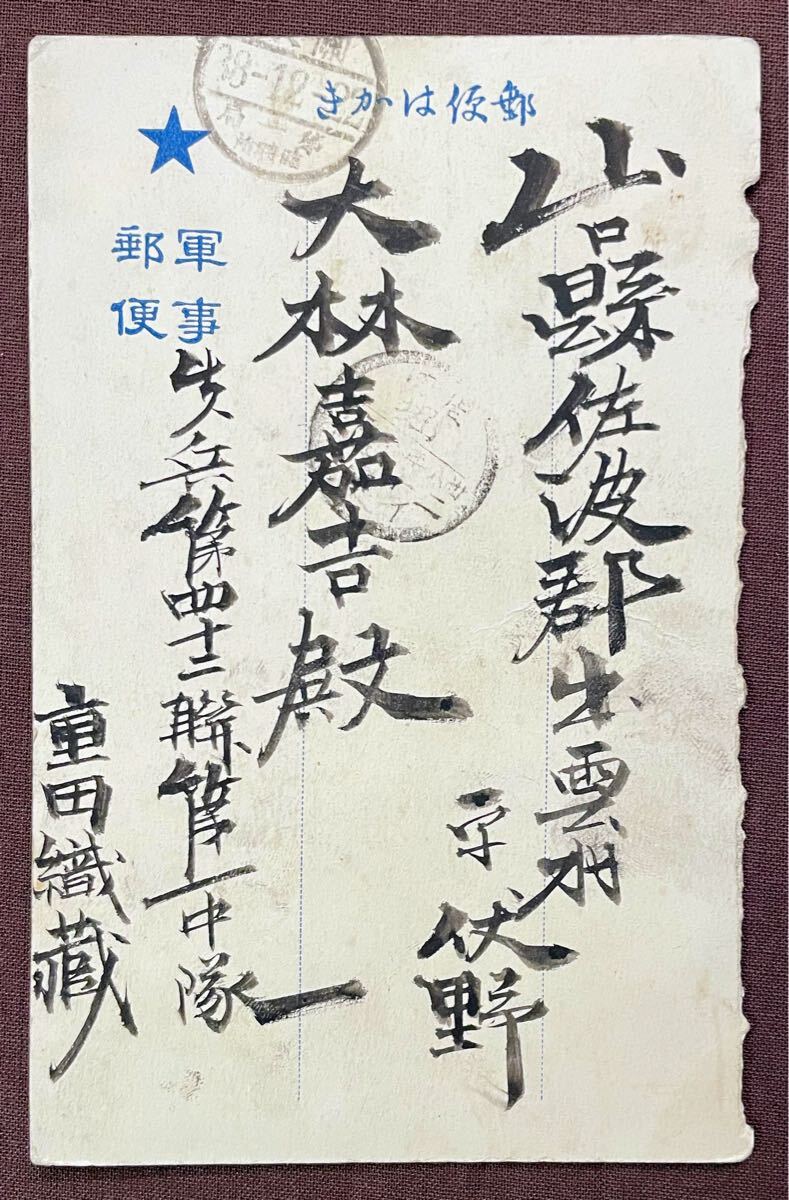 郵便はかき
山口縣佐波郡出雲村
字伏野
大林嘉吉殿
軍事
郵便
歩兵第四十二聯第一中隊
重田織藏
38-12-22